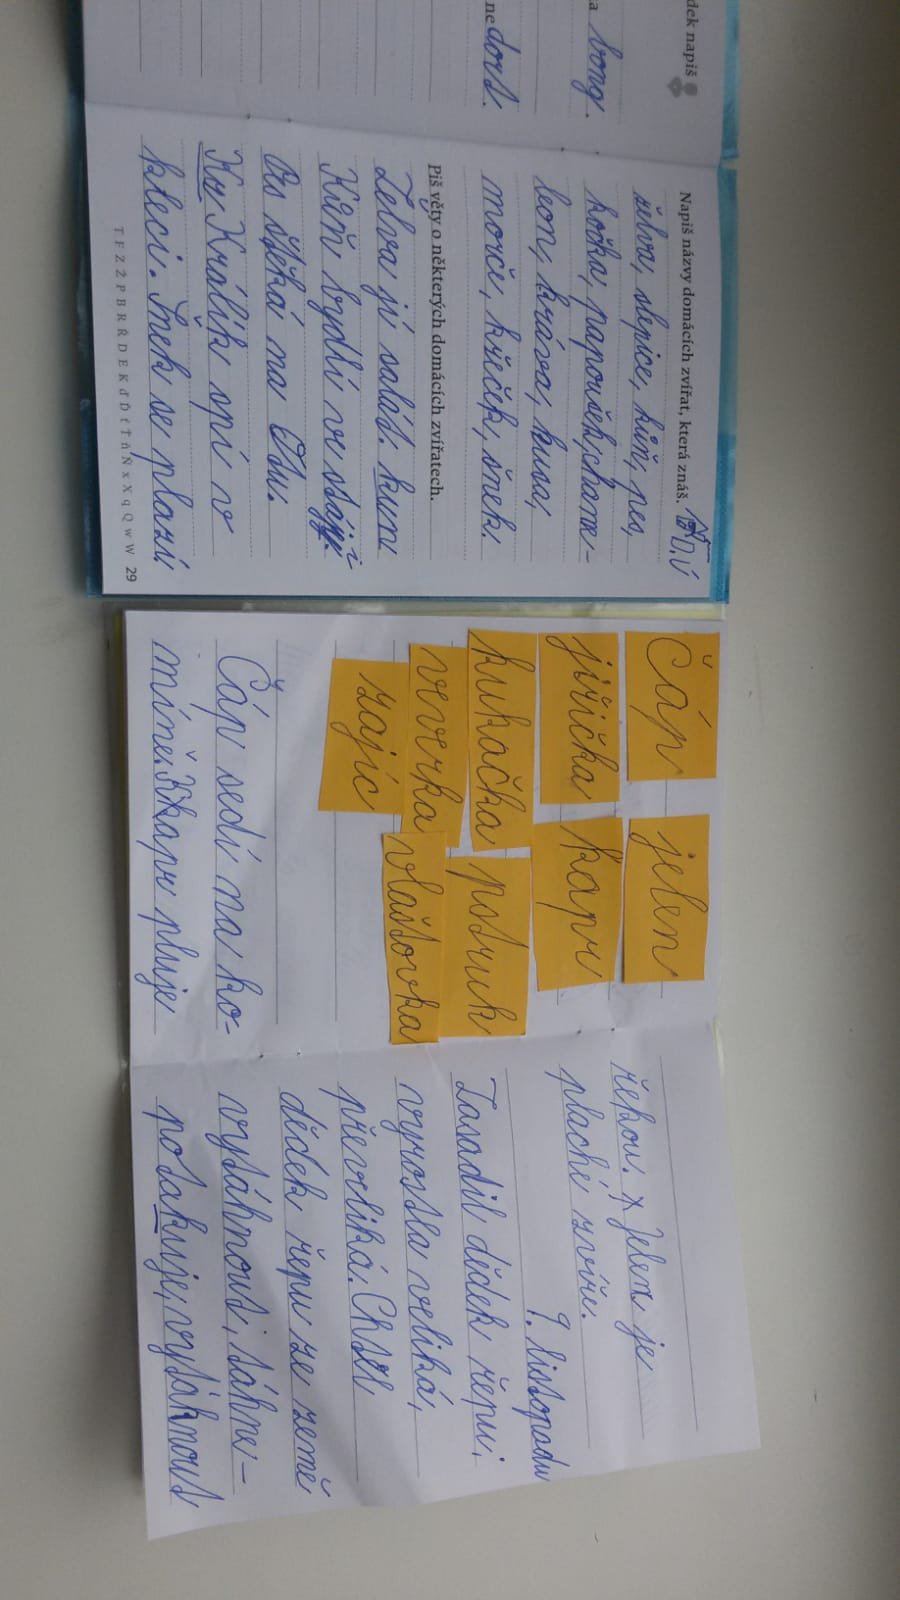 dek napiš
a bong.
ne dort.
Napiš názvy domácích zvířat, která znáš. DÚ
želva, slepice, kůň, pes,
kočka, papoušek, chame-
leon, kráva, husa,
morče, křeček, šnek.
Piš věty o některých domácích zvířatech.
Želva jí salát. kun
Kůň bydlí ve stáji
štěká na
Králík spí v
kleci. Šnek se plazí
T F Z Ž P B R Ř D E K ď Ď ť Ť ň Ň x X q Q w W 29
Čáp jelen
jiřička kapr
kukačka pstruh
veverka vlaštovka
zajíc
Čáp sedí na ko-
míně. kapr pluje
řekou. Jelen je
plaché zvíře.
9. listopadu
Zasadil dědek řepu;
vyrostla veliká,
převeliká. Chtěl
dědek řepu ze země
vytáhnout; táhne-
potahuje, vytáhnout